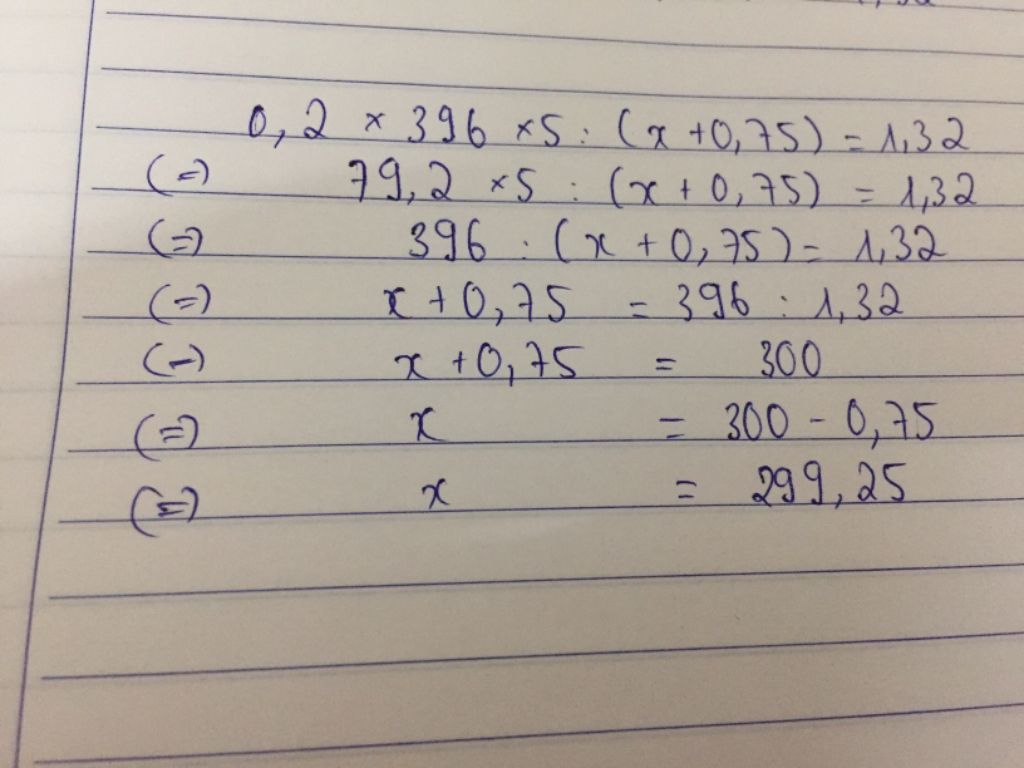 0,2 × 396 × 5 : (x + 0,75) = 1,32
(=) 79,2 × 5 : (x + 0,75) = 1,32
(=) 396 : (x + 0,75) = 1,32
(=) x + 0,75 = 396 : 1,32
(-) x + 0,75 = 300
(=) x = 300 - 0,75
(=) x = 299,25